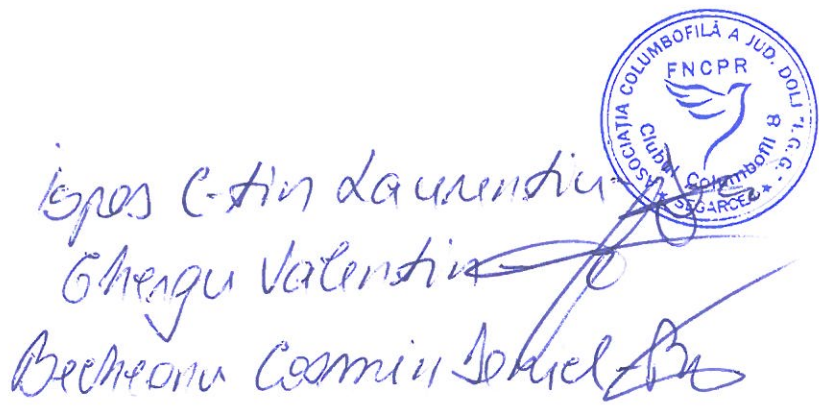 ASOCIAŢIA COLUMBOFILĂ A JUD. DOLJ "I.G.G."
FNCPR
Clubul Columbofil 8
* SEGARCEA *
Ispas C-tin Laurentiu
Ghergu Valentin
Becheanu Cosmin Ionel